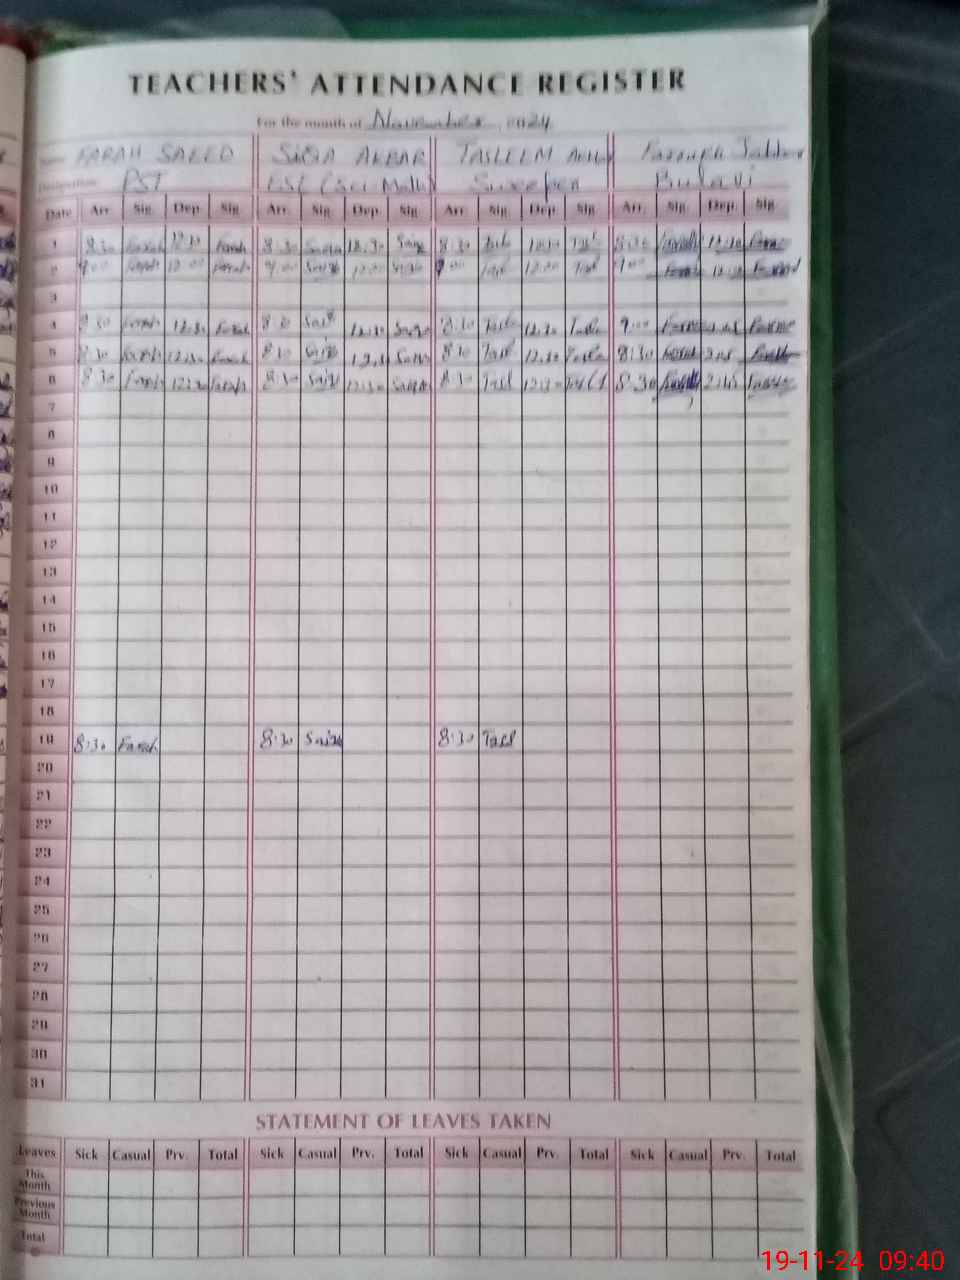 TEACHERS' ATTENDANCE REGISTER
For the month of November, 2024
Name FARAH SAEED SAIQA AKBAR TASLEEM
Designation PST EST (Sci-Math) Sweeper
Date Arr. Sig. Dep. Sig. Arr. Sig. Dep. Sig. Arr. Sig. Dep. Sig. Arr. Sig. Dep. Sig.
1 8:30 Farah 12:30 Farah 8:30 Saiqa 12:30 Saiq 8:30 12:30 8:30 12:30
2 9:00 Farah 12:00 Farah 9:00 Saiq 12:00 Saiq 9:00 Tasl 12:00 Tasl 9:00
3
4 8:30 Farah 12:30 Farah 8:30 Saiq 12:30 Saiqa 8:30 Tasl 12:30 Tasle 9:00
5 8:30 Farah 12:30 Farah 8:30 Saiq 12:30 Saiq 8:30 Tasl 12:30 Tasle 8:30 2:45
6 8:30 Farah 12:30 Farah 8:30 Saiq 12:30 Saiqa 8:30 Tasl 12:30 Tasl 8:30 2:45
7
8
9
10
11
12
13
14
15
16
17
18
19 8:30 Farah 8:30 Saiqa 8:30 Tasl
20
21
22
23
24
25
26
27
28
29
30
31
STATEMENT OF LEAVES TAKEN
Leaves Sick Casual Prv. Total Sick Casual Prv. Total Sick Casual Prv. Total Sick Casual Prv. Total
This
Month
Previous
Month
Total
19-11-24 09:40